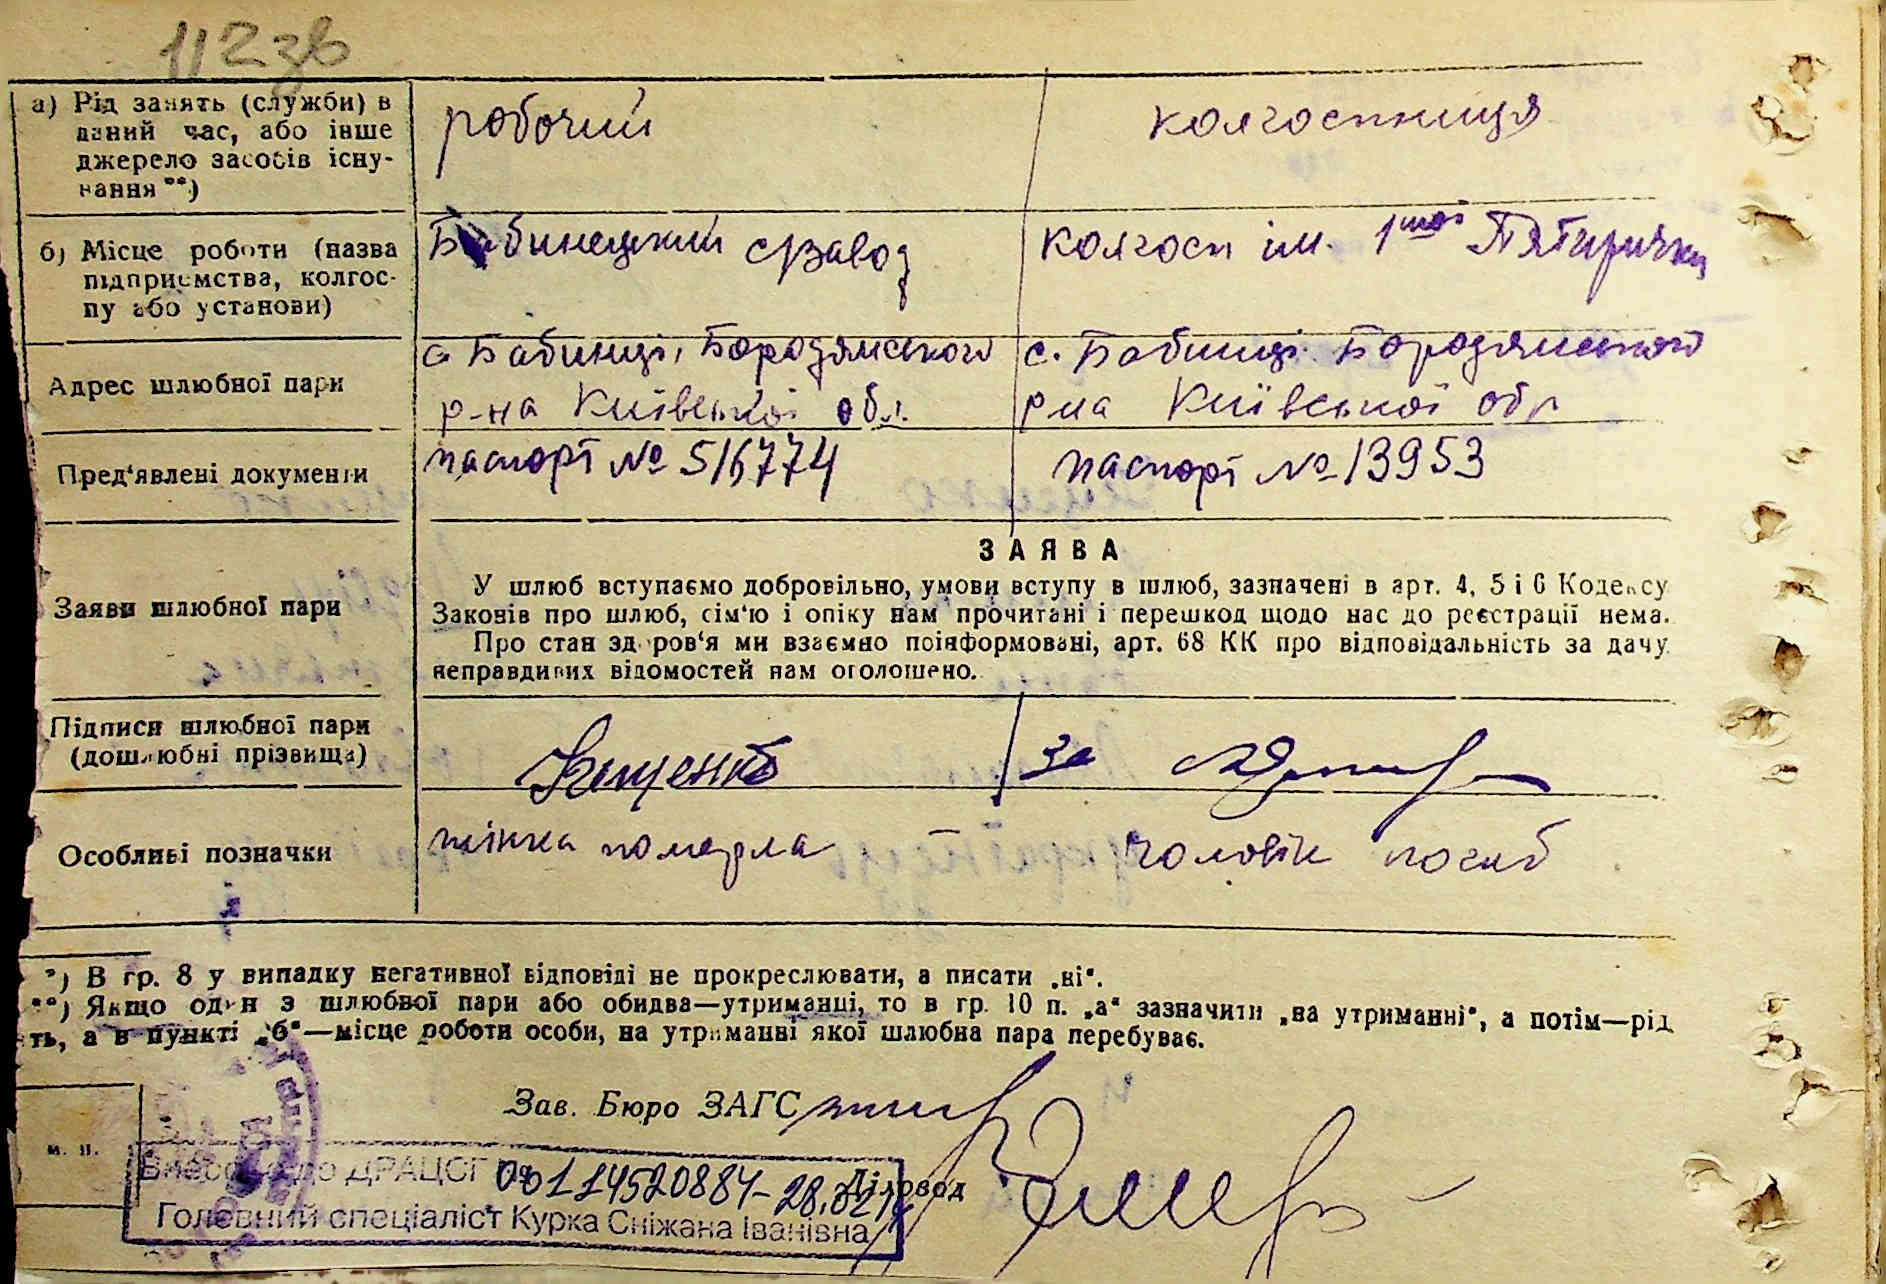 112 зв
а) Рід занять (служби) в даний час, або інше джерело засобів існування**)
робочий
колгоспниця
б) Місце роботи (назва підприємства, колгоспу або установи)
Бабинецький с/завод
колгосп ім. 1шої Пятирічки
Адрес шлюбної пари
с Бабинці, Бородямського
р-на Київської обл.
с. Бабинці Бородямського
р-на Київської обл
Пред'явлені документи
паспорт № 516774
паспорт № 13953
ЗАЯВА
Заяви шлюбної пари
У шлюб вступаємо добровільно, умови вступу в шлюб, зазначені в арт. 4, 5 і 6 Кодексу
Законів про шлюб, сім'ю і опіку нам прочитані і перешкод щодо нас до реєстрації нема.
Про стан здоров'я ми взаємно поінформовані, арт. 68 КК про відповідальність за дачу
неправдивих відомостей нам оголошено.
Підписи шлюбної пари
(дошлюбні прізвища)
за
Особливі позначки
жінка померла
чоловік погиб
*) В гр. 8 у випадку негативної відповіді не прокреслювати, а писати „ні“.
**) Якщо один з шлюбної пари або обидва—утриманці, то в гр. 10 п. „а“ зазначити „на утриманні“, а потім—рід
ть, а в пункті „б“—місце роботи особи, на утриманні якої шлюбна пара перебуває.
Зав. Бюро ЗАГС
м. п.
до ДРАЦСГ № 00114520884-28.02
Діловод
Головний спеціаліст Курка Сніжана Іванівна